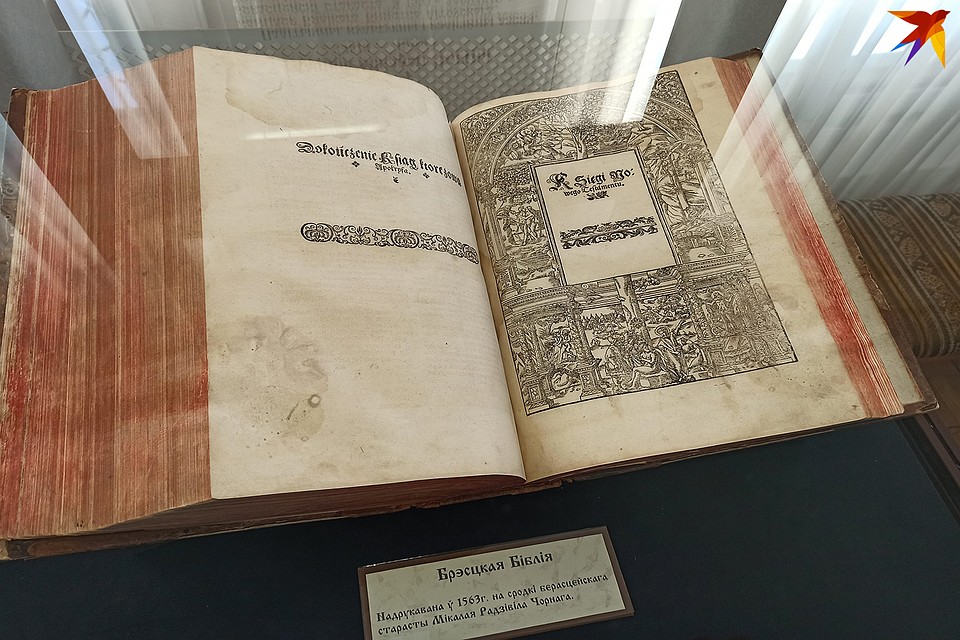 Dokończenie Ksiąg ktore zową
Apokrypha.
Księgi No-
wego Testamentu.
Брэсцкая Біблія
Надрукавана ў 1563г. на сродкі берасцейскага
старасты Мікалая Радзівіла Чорнага.